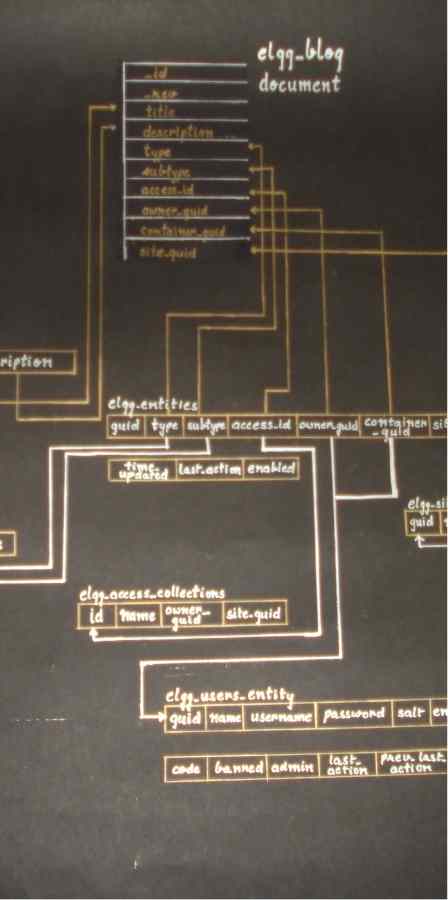 elgg_blog
document
_id
_rev
title
description
type
subtype
access_id
owner_guid
container_guid
site_guid
ription
elgg_entities
guid type subtype access_id owner_guid container_guid
time_updated last_action enabled
elgg_access_collections
id name owner_guid site_guid
guid
elgg_users_entity
guid name username password salt
code banned admin last_action prev_last_action